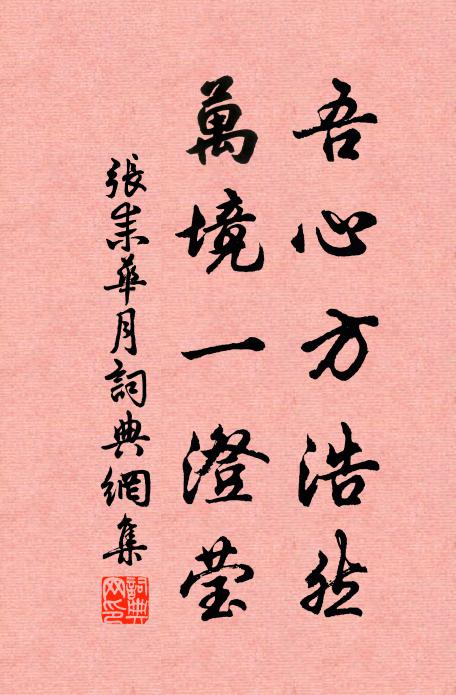 吾心方浩然
萬境一澄莹
張耒華月詞典網集
詞典网印